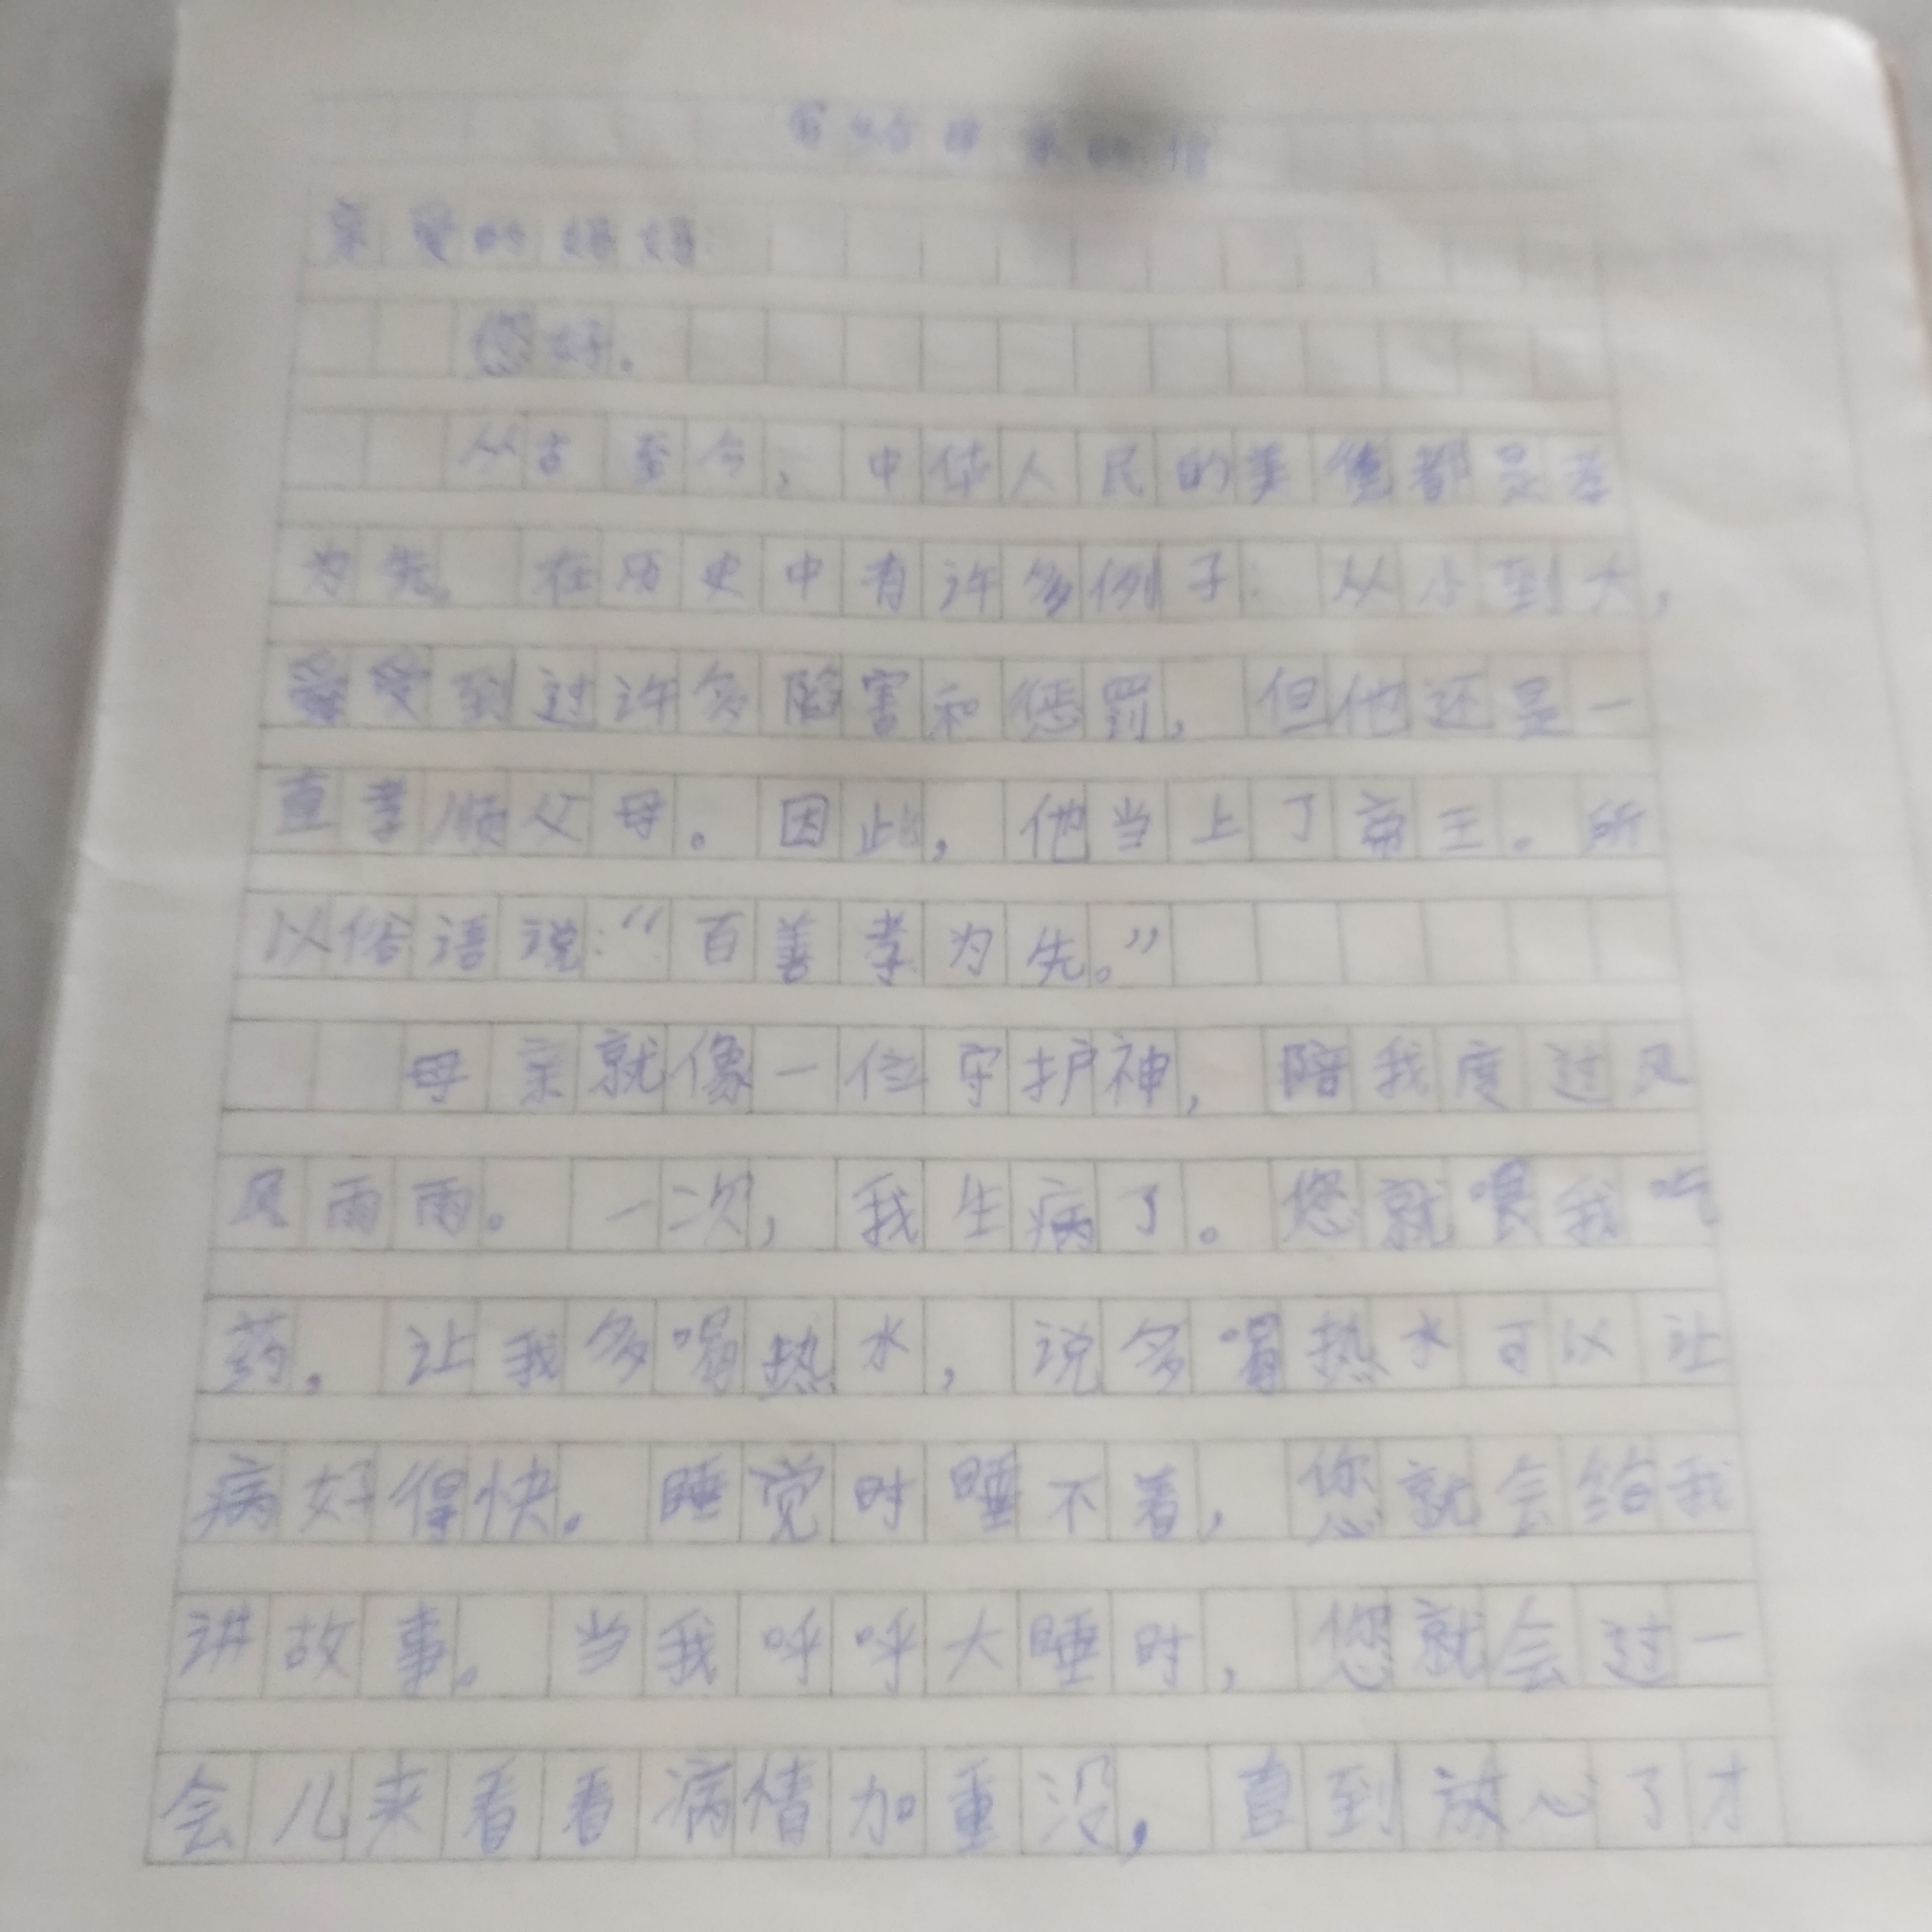 写给母亲的信
亲爱的妈妈:
您好。
从古至今，中华人民的美德都是孝
为先。在历史中有许多例子：从小到大，
受到过许多陷害和惩罚，但他还是一
直孝顺父母。因此，他当上了帝王。所
以俗语说：“百善孝为先。”
母亲就像一位守护神，陪我度过风
风雨雨。一次，我生病了。您就喂我吃
药。让我多喝热水，说多喝热水可以让
病好得快。睡觉时睡不着，您就会给我
讲故事。当我呼呼大睡时，您就会过一
会儿来看看病情加重没，直到放心了才